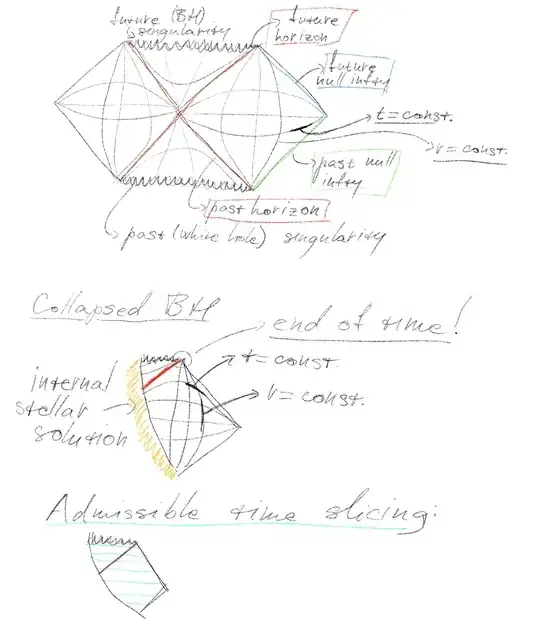 future (BH)
singularity
future
horizon
future
null infty
t=const.
r=const.
past null
infty
past horizon
past (white hole) singularity
Collapsed BH
end of time!
t=const.
r=const.
internal
stellar
solution
Admissible time slicing: